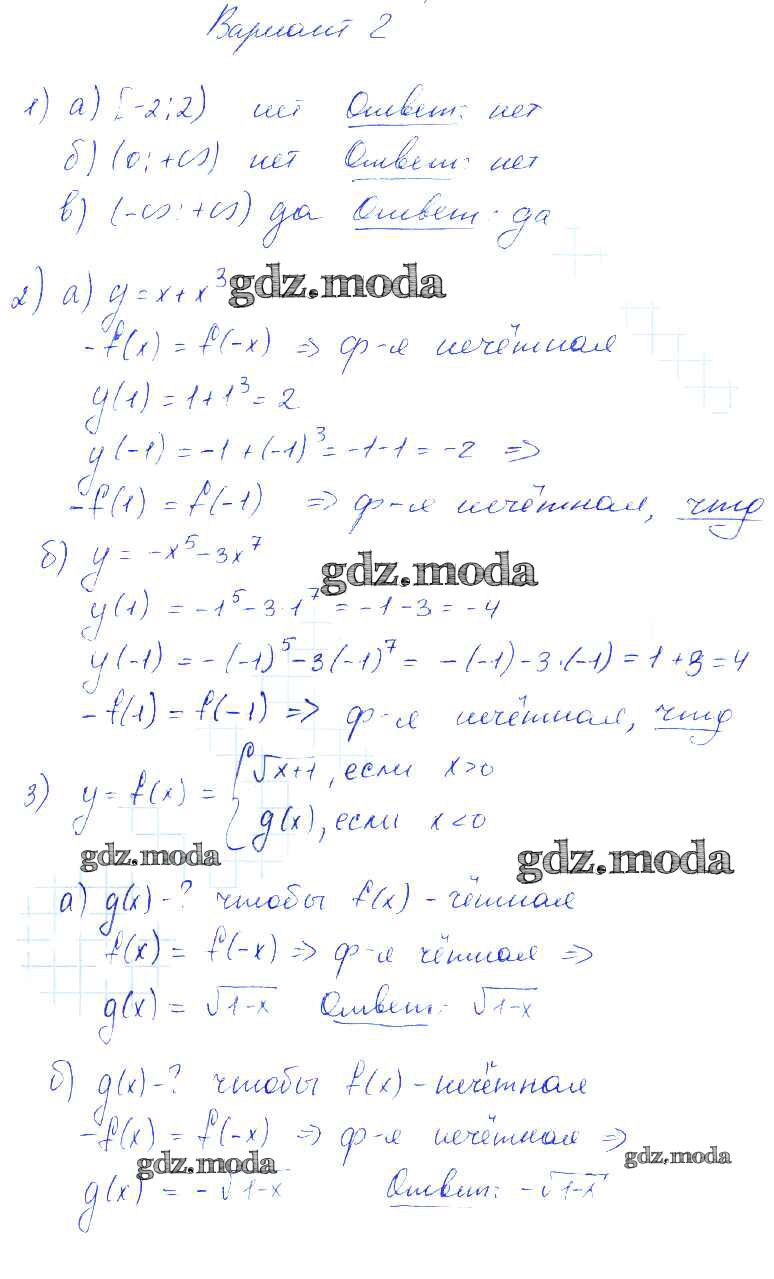 Вариант 2
1) а) [-2; 2) нет Ответ: нет
б) (0; +∞) нет Ответ: нет
в) (-∞; +∞) да Ответ: да
2) а) y = x + x³ gdz.moda
-f(x) = f(-x) ⇒ ф-я нечётная
y(1) = 1 + 1³ = 2
y(-1) = -1 + (-1)³ = -1 - 1 = -2 ⇒
-f(1) = f(-1) ⇒ ф-я нечётная, чтд
б) y = -x⁵ - 3x⁷
gdz.moda
y(1) = -1⁵ - 3·1⁷ = -1 - 3 = -4
y(-1) = -(-1)⁵ - 3(-1)⁷ = -(-1) - 3·(-1) = 1 + 3 = 4
-f(1) = f(-1) ⇒ ф-я нечётная, чтд
3) y = f(x) = { √x+1, если x>0
g(x), если x<0
gdz.moda gdz.moda
а) g(x) - ? чтобы f(x) - чётная
f(x) = f(-x) ⇒ ф-я чётная ⇒
g(x) = √1-x Ответ: √1-x
б) g(x) - ? чтобы f(x) - нечётная
-f(x) = f(-x) ⇒ ф-я нечётная ⇒
gdz.moda gdz.moda
g(x) = -√1-x Ответ: -√1-x